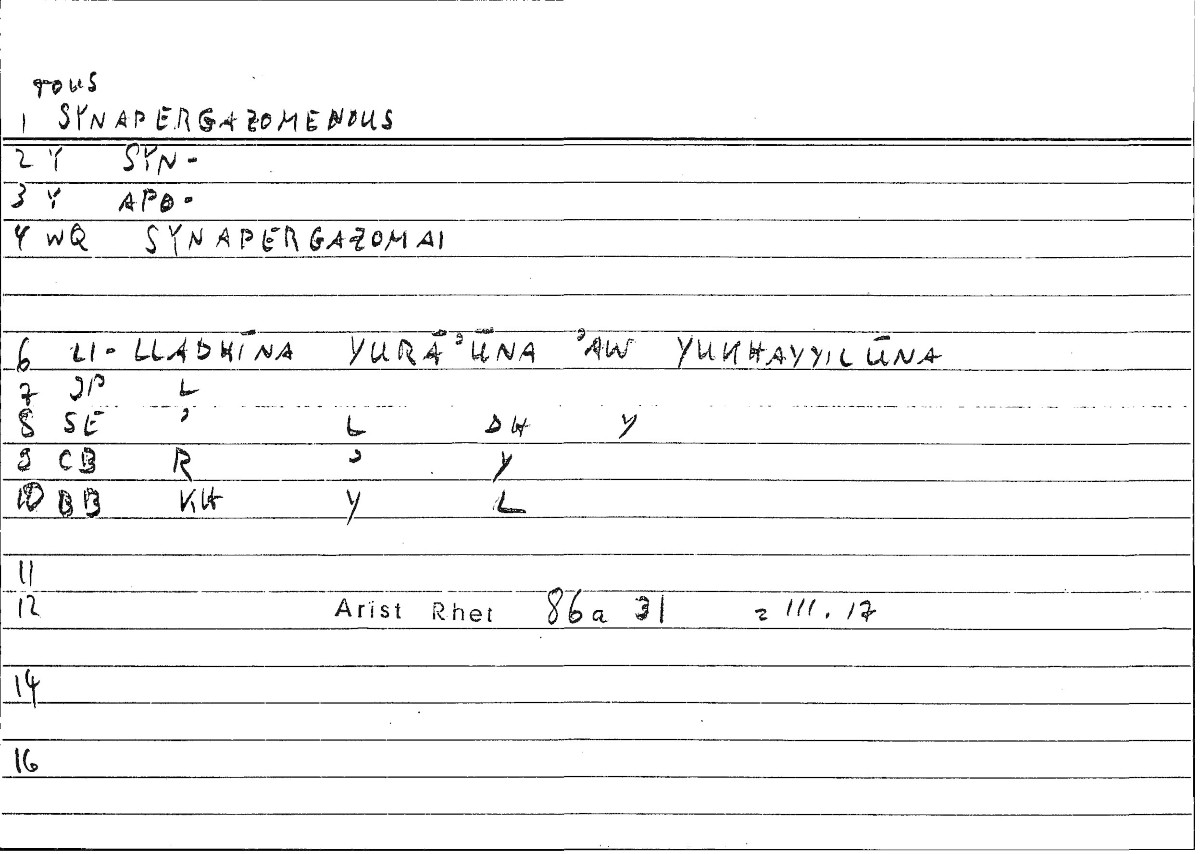 TOUS
1 SYNAPERGAZOMENOUS
2 Y SYN-
3 Y APO-
4 WQ SYNAPERGAZOMAI
6 LI-LLADHĪNA YURĀʾŪNA ʾAW YUKHAYYILŪNA
7 JP L
8 SE ʾ L DH Y
9 CB R ʾ Y
10 BB KH Y L
11
12 Arist Rhet 86a 31 = 111.17
14
16